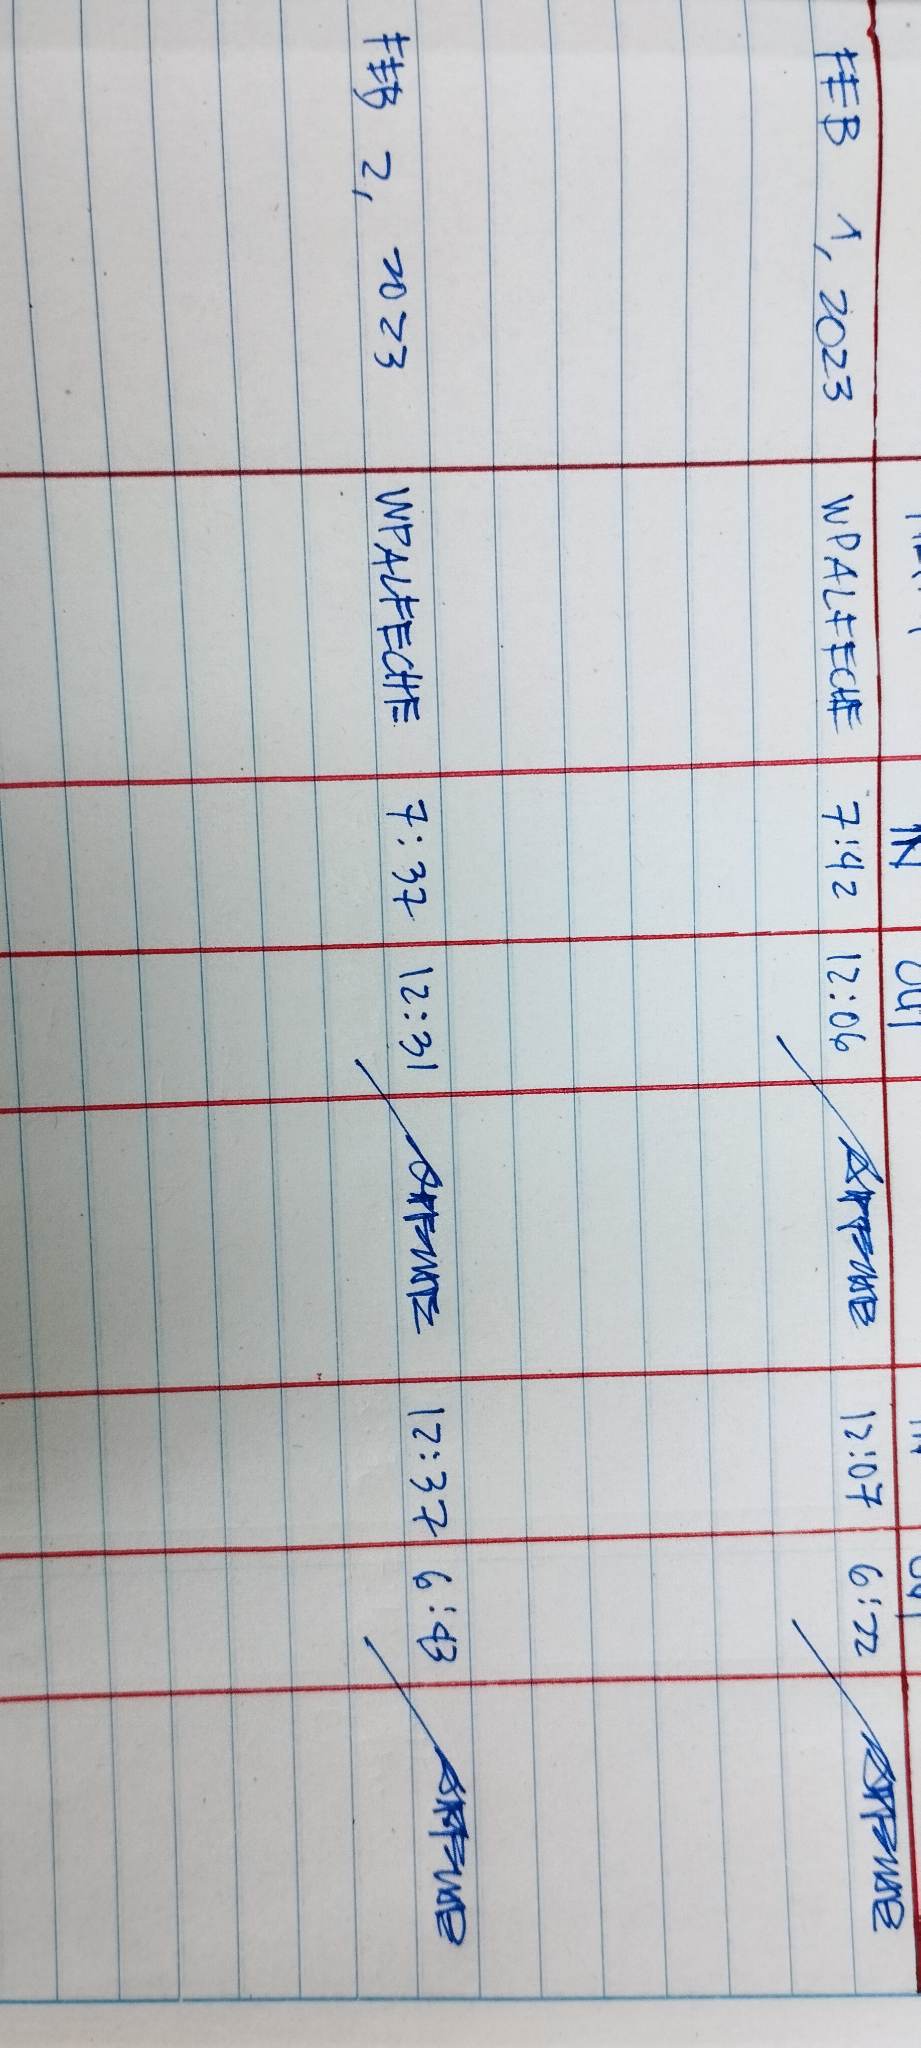 IN OUT IN OUT
FEB 1, 2023 WPALFECHE 7:42 12:06 12:07 6:22
FEB 2, 2023 WPALFECHE 7:37 12:31 12:37 6:43